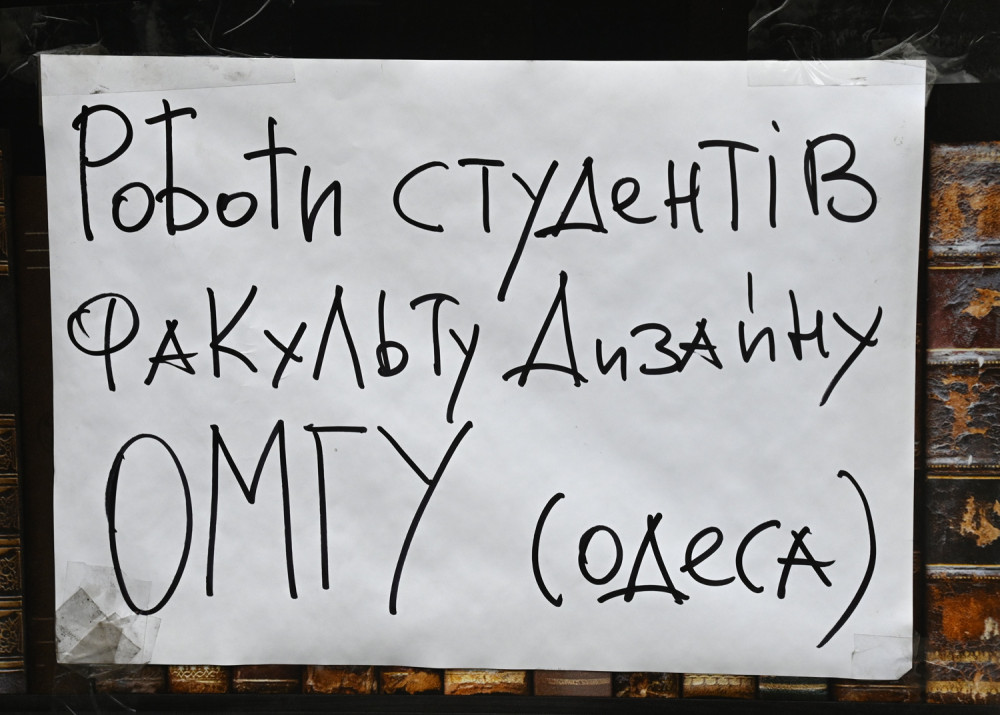 Роботи студентів
факульту Дизайну
ОМГУ (одеса)